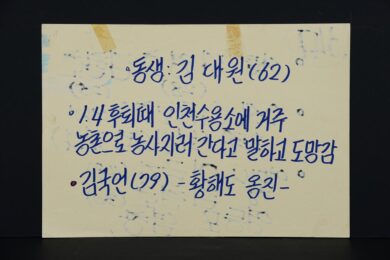 동생: 김대원(62)
1.4 후퇴때 인천수용소에 거주
농촌으로 농사지러 간다고 말하고 도망감
김국언(79) - 황해도 옹진 -